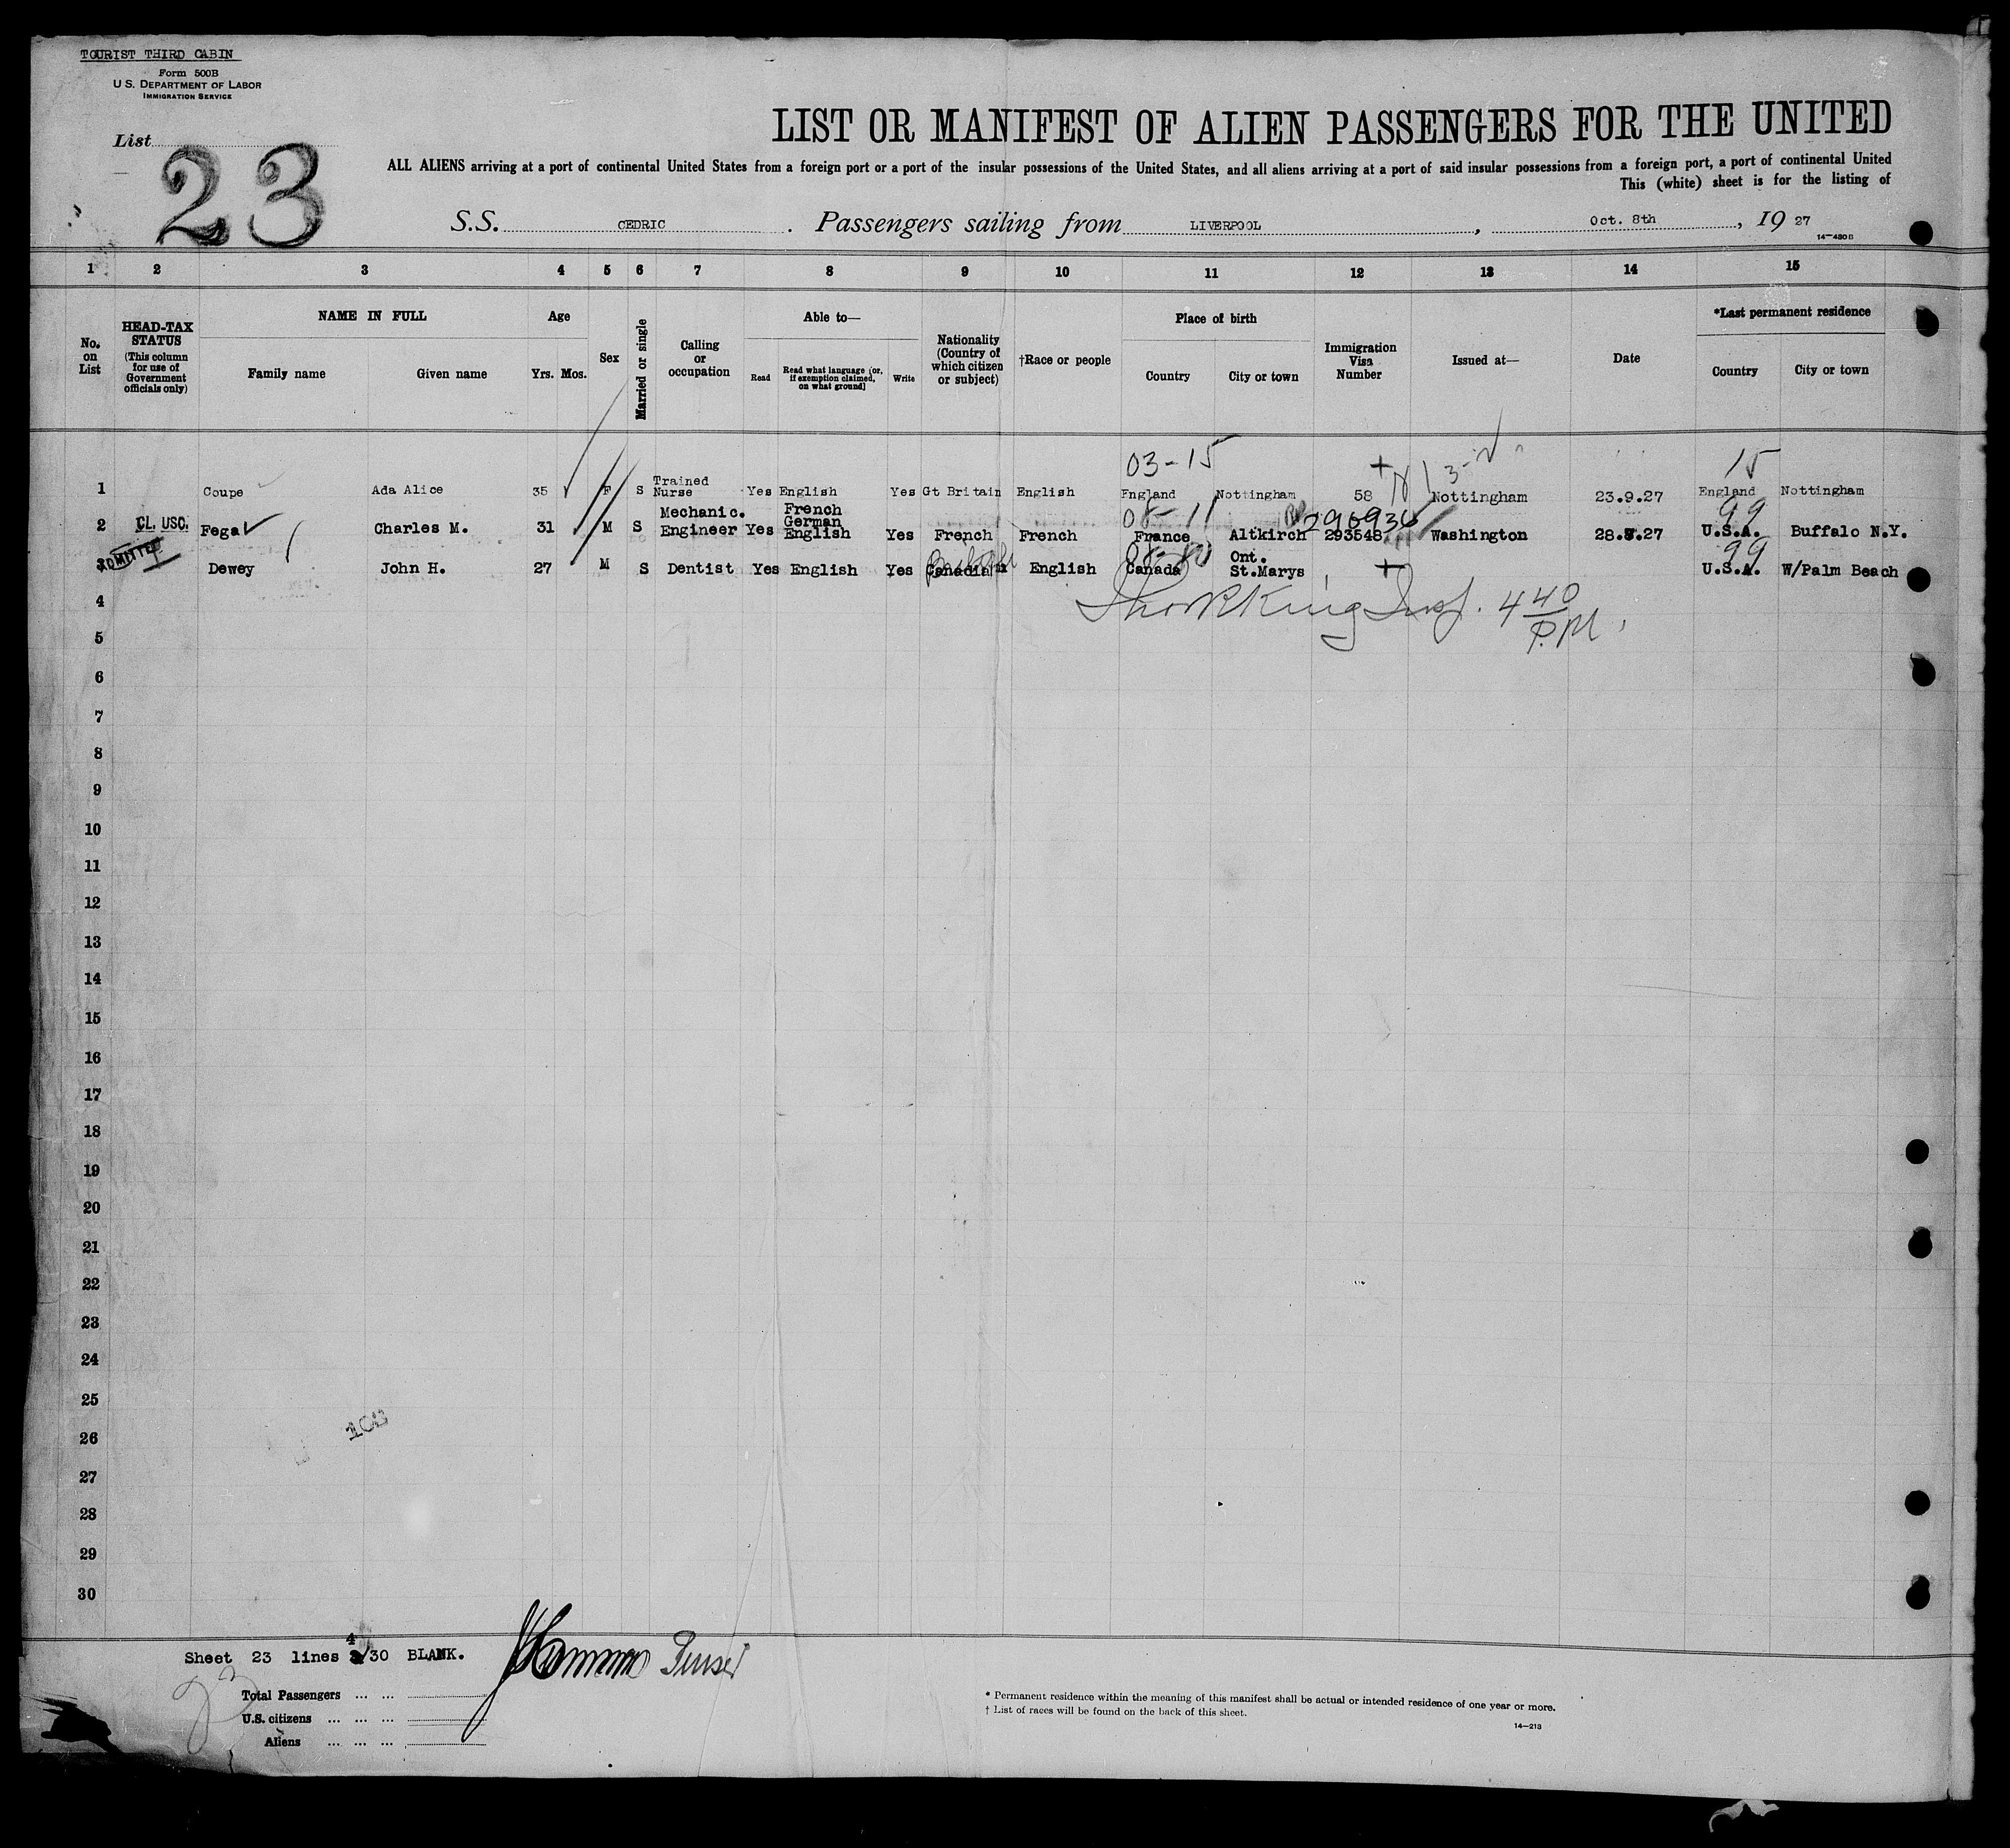 TOURIST THIRD CABIN
Form 500B
U.S. DEPARTMENT OF LABOR
IMMIGRATION SERVICE
List 23
LIST OR MANIFEST OF ALIEN PASSENGERS FOR THE UNITED
ALL ALIENS arriving at a port of continental United States from a foreign port or a port of the insular possessions of the United States, and all aliens arriving at a port of said insular possessions from a foreign port, a port of continental United
This (white) sheet is for the listing of
S.S. CEDRIC. Passengers sailing from LIVERPOOL, Oct. 8th, 19 27
14-430 B
1 2 3 4 5 6 7 8 9 10 11 12 13 14 15
No. on List
HEAD-TAX STATUS (This column for use of Government officials only)
NAME IN FULL
Family name
Given name
Age
Yrs. Mos.
Sex
Married or single
Calling or occupation
Able to—
Read
Read what language [or, if exemption claimed, on what ground]
Write
Nationality (Country of which citizen or subject)
†Race or people
Place of birth
Country
City or town
Immigration Visa Number
Issued at—
Date
*Last permanent residence
Country
City or town
03-15
15
1 Coupe Ada Alice 35 F S Trained Nurse Yes English Yes Gt Britain English England Nottingham 58 Nottingham 23.9.27 England Nottingham
290936
99
2 CL. USC. Fega Charles M. 31 M S Mechanic. Engineer Yes French German English Yes French French France Altkirch 293548 Washington 28. .27 U.S.A. Buffalo N.Y.
99
3 ADMITTED Dewey John H. 27 M S Dentist Yes English Yes Canadian English Canada Ont. St.Marys U.S.A. W/Palm Beach
4
Insp. 4 40 P.M.
5
6
7
8
9
10
11
12
13
14
15
16
17
18
19
20
21
22
23
24
25
26
27
28
29
30
Sheet 23 lines 4/30 BLANK.
Purser
23
Total Passengers ... ...
U.S. citizens ... ... ...
Aliens ... ... ...
* Permanent residence within the meaning of this manifest shall be actual or intended residence of one year or more.
† List of races will be found on the back of this sheet.
14-213